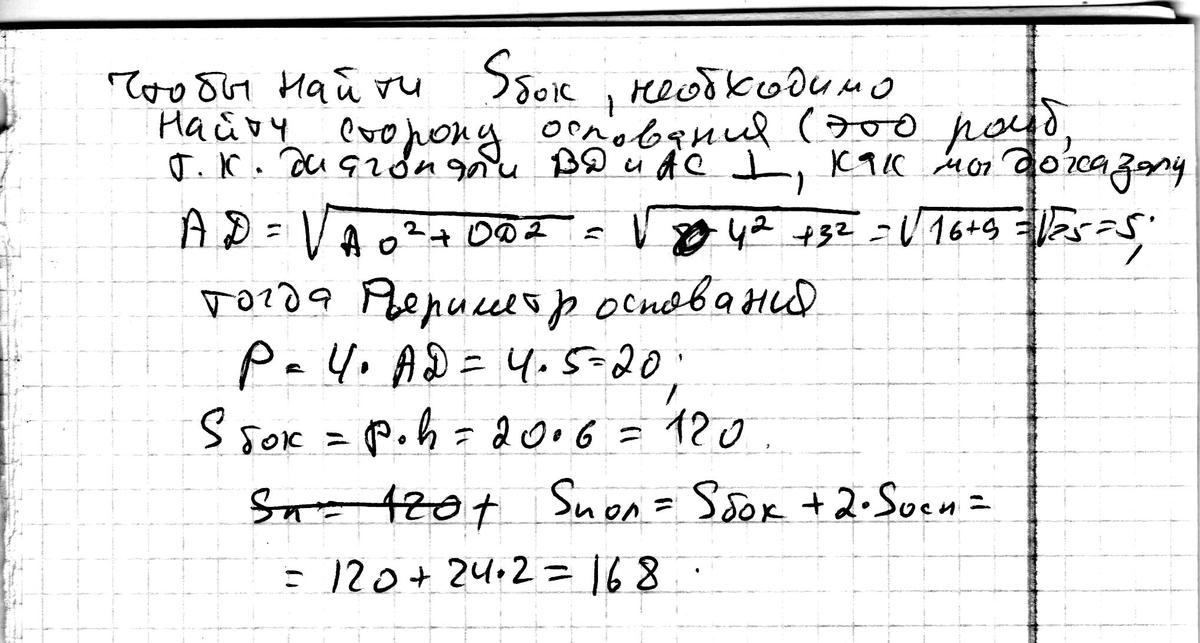 Чтобы найти Sбок, необходимо
найти сторону основания (это ромб,
т.к. диагонали BD и AC ⊥, как мы доказали
AD = √(AO² + OD²) = √(4² + 3²) = √(16+9) = √25 = 5;
тогда Периметр основания
P = 4 · AD = 4 · 5 = 20;
Sбок = P · h = 20 · 6 = 120.
Sп = 120 + Sпол = Sбок + 2 · Sосн =
= 120 + 24 · 2 = 168.